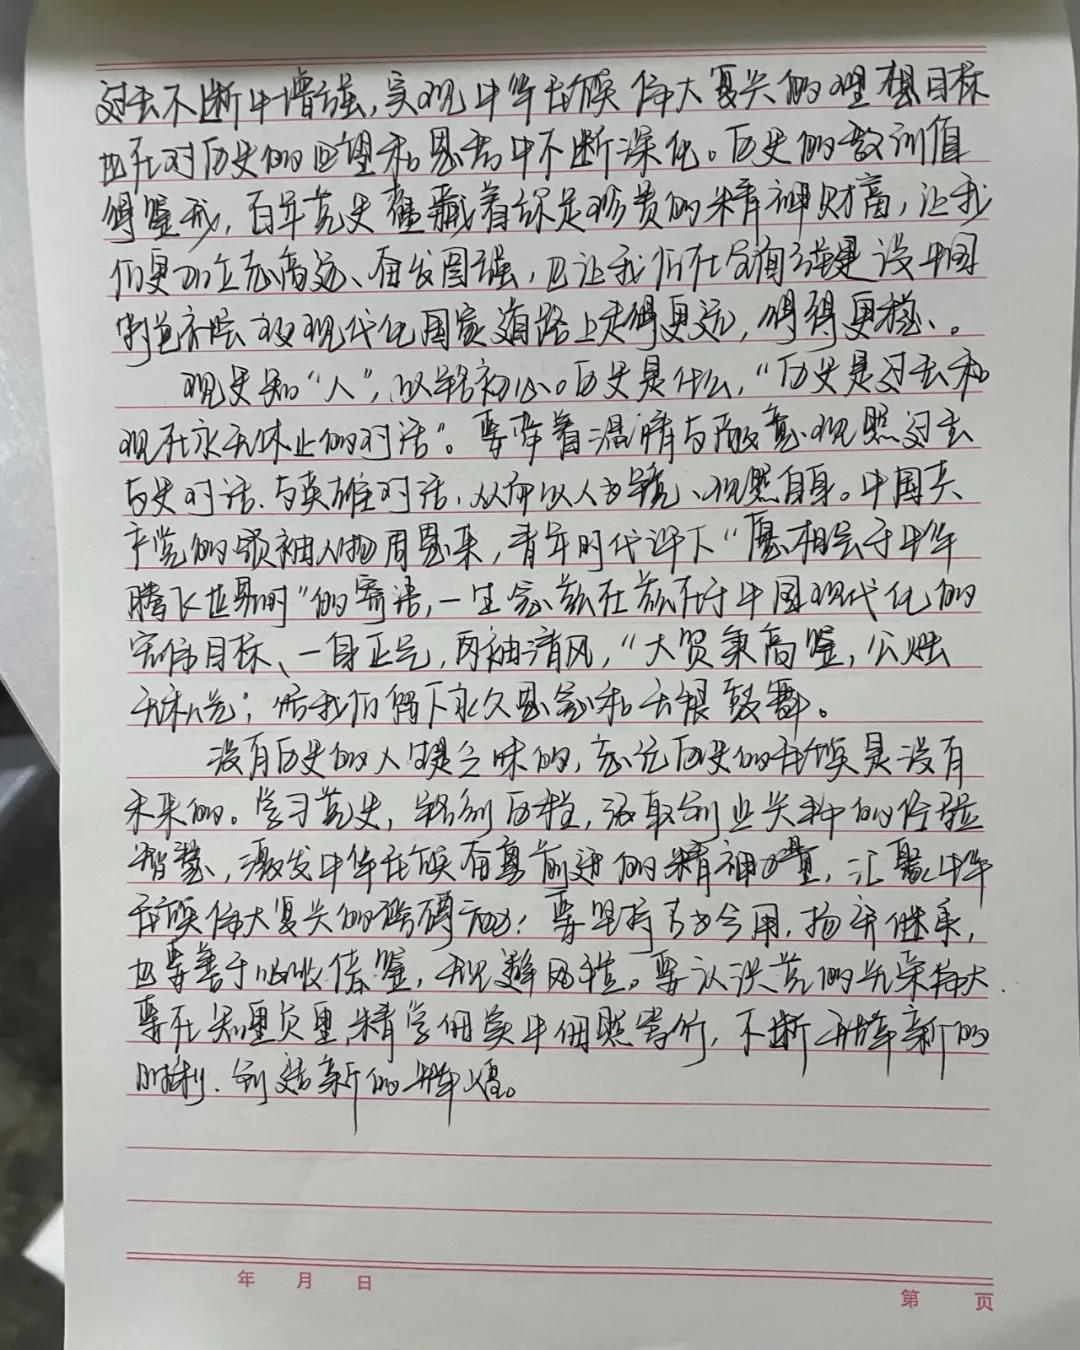 过去不断中增强，实现中华民族伟大复兴的理想目标
也在对历史的回望和思考中不断深化。历史的教训值
得鉴戒，百年党史蕴藏着弥足珍贵的精神财富，让我
们更加立志高远、奋发图强，也让我们在全面建设中国
特色社会主义现代化国家道路上走得更远，得更稳。
观史知“人”，以铭初心。历史是什么，“历史是过去和
现在永无休止的对话”。要带着温情与敬意观照过去
与史对话、与英雄对话，从而以人为镜、观照自身。中国共
产党的领袖人物周恩来，青年时代许下“愿相会于中华
腾飞世界时”的寄语，一生念兹在兹在于中国现代化的
宏伟目标、一身正气，两袖清风，“大贤秉高鉴，公烛
无私光”给我们留下永久思念和无限鼓舞。
没有历史的人是乏味的，忘记历史的民族是没有
未来的。学习党史，铭刻历程，汲取创业关头中的经验
智慧、激发中华民族奋勇前进的精神力量，汇聚中华
民族伟大复兴的磅礴动力！要坚持古为今用，扬弃继承，
也要善于吸收借鉴，规避风险。要认识党的光荣伟大
要在知里见里，精学细实中细照笃行，不断开辟新的
胜利、创造新的辉煌。
年 月 日
第 页